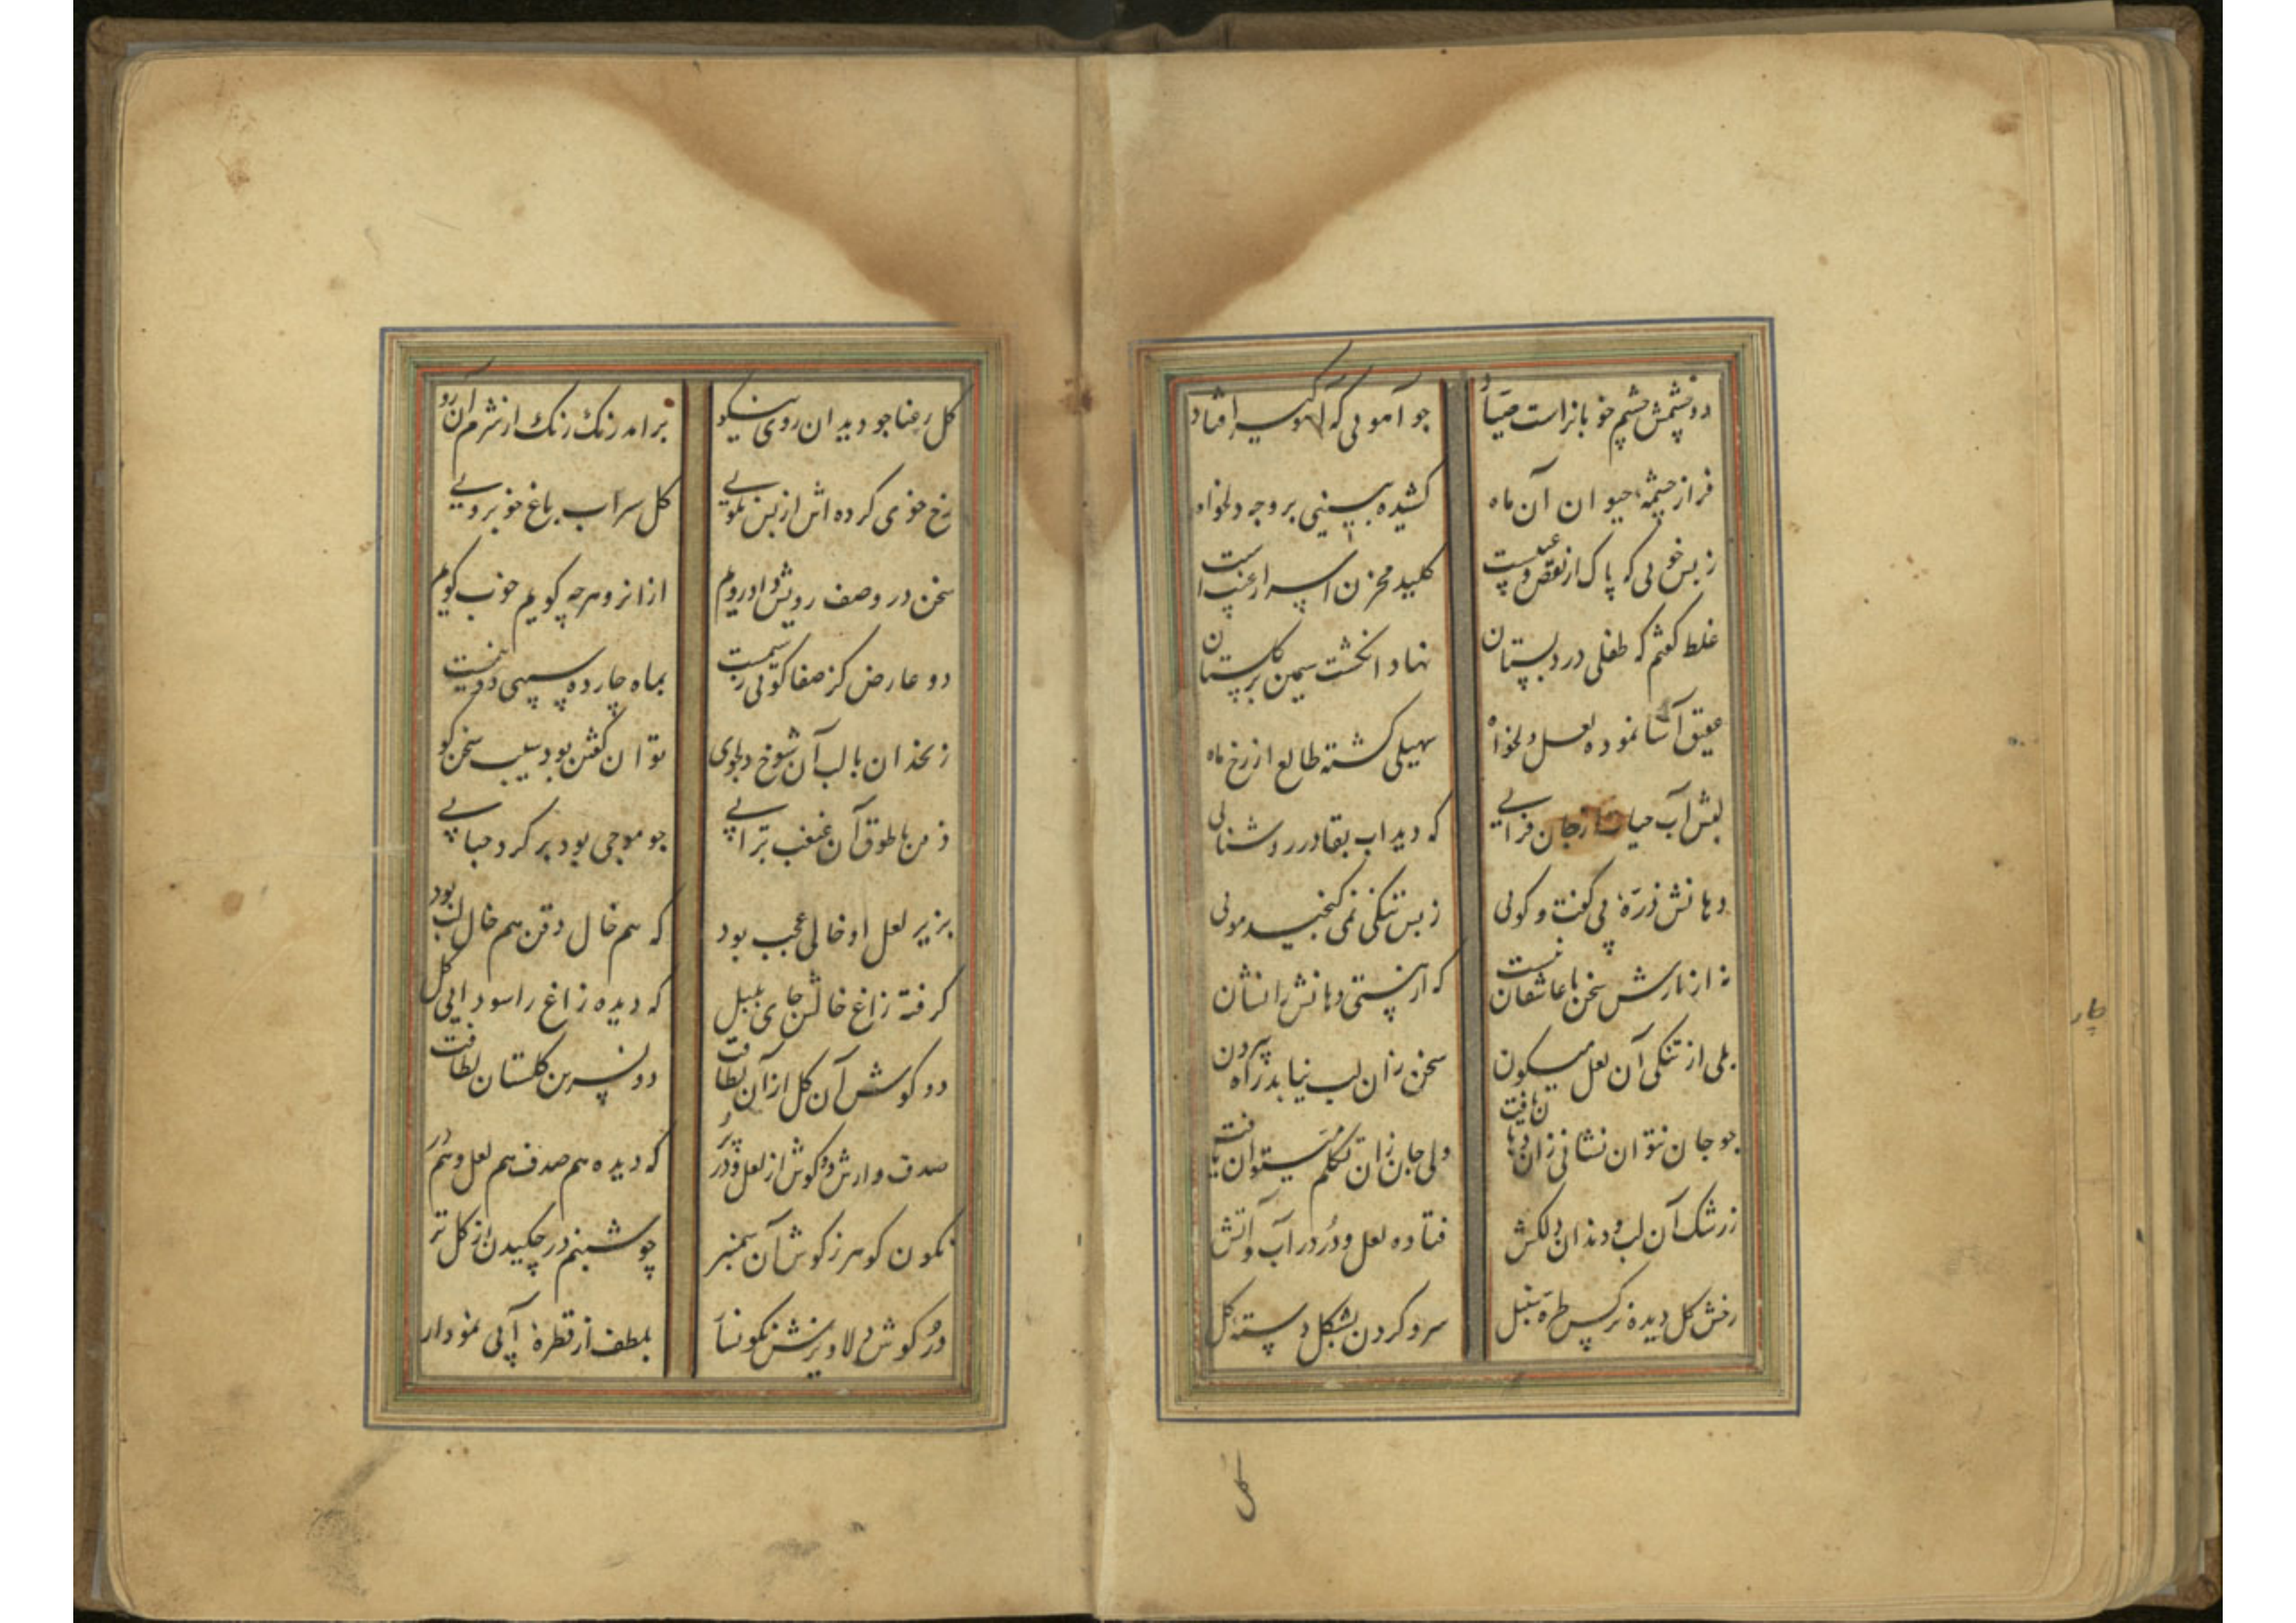 دو چشمش چشم خو بازاست صیاد
چو آهویی که آهو گیر افتاد
فراز چشمهٔ حیوان آن ماه
کشیده بینی بر وجه دلخواه
ز بس خوبی که پاک از نقص و عیبست
کلید مخزن اسرار غیبست
غلط گفتم که طفلی در دبستان
نهاد انگشت سیمین بر گلستان
عقیق آسا نموده لعل دلخواه
سهیلی گشته طالع از رخ ماه
لبش آب حیات از جان فزایی
که دید آب بقا در روشنایی
دهانش ذرهٔ بی گفت و گویی
ز بس تنگی نمی گنجید مویی
نه از نازش سخن با عاشقان نیست
که از هستی دهانش را نشان
بلی از تنگی آن لعل میگون
سخن زان لب نیابد راه بیرون
چو جان نتوان نشانی زان دهان یافت
ولی جان زان تکلم میتوان یافت
ز رشک آن لب و دندان دلکش
فتاده لعل و دُر در آب و آتش
رخش گل دیده نرگس طره سنبل
سر و گردن بشکل دسته گل
گل
چار
گل رعنا چو دید ان روی نیکو
برامد رنگ رنگ از شرم آن رو
رخ خوی کرده اش از بس نکویی
گل سراب باغ خوبرویی
سخن در وصف رویش داد رویم
ازانرو هرچه گویم خوب گویم
دو عارض کز صفا گویی سیمست
بماه چارده سیبی دو نیمست
زنخدان با لب آن شوخ دلجوی
توان گفتن بود سیب سخن گو
ذقن با طوق آن غبغب تر آبی
چو موجی بود بر گرد حبابی
بزیر لعل او خالی عجب بود
که هم خال ذقن هم خال لب بود
گرفته زاغ خالش جای بلبل
که دیده زاغ را سودایی گل
دو گوش آن گل از آن لطافت
دو نسرین گلستان لطافت
صدف وارش دو گوش از لعل و در پر
که دیده هم صدف هم لعل و هم در
نگون گوهر ز گوش آن سمنبر
چو شبنم در چکیدن از گل تر
در گوش دلاویزش نگونسار
بلطف از قطرهٔ آبی نمودار